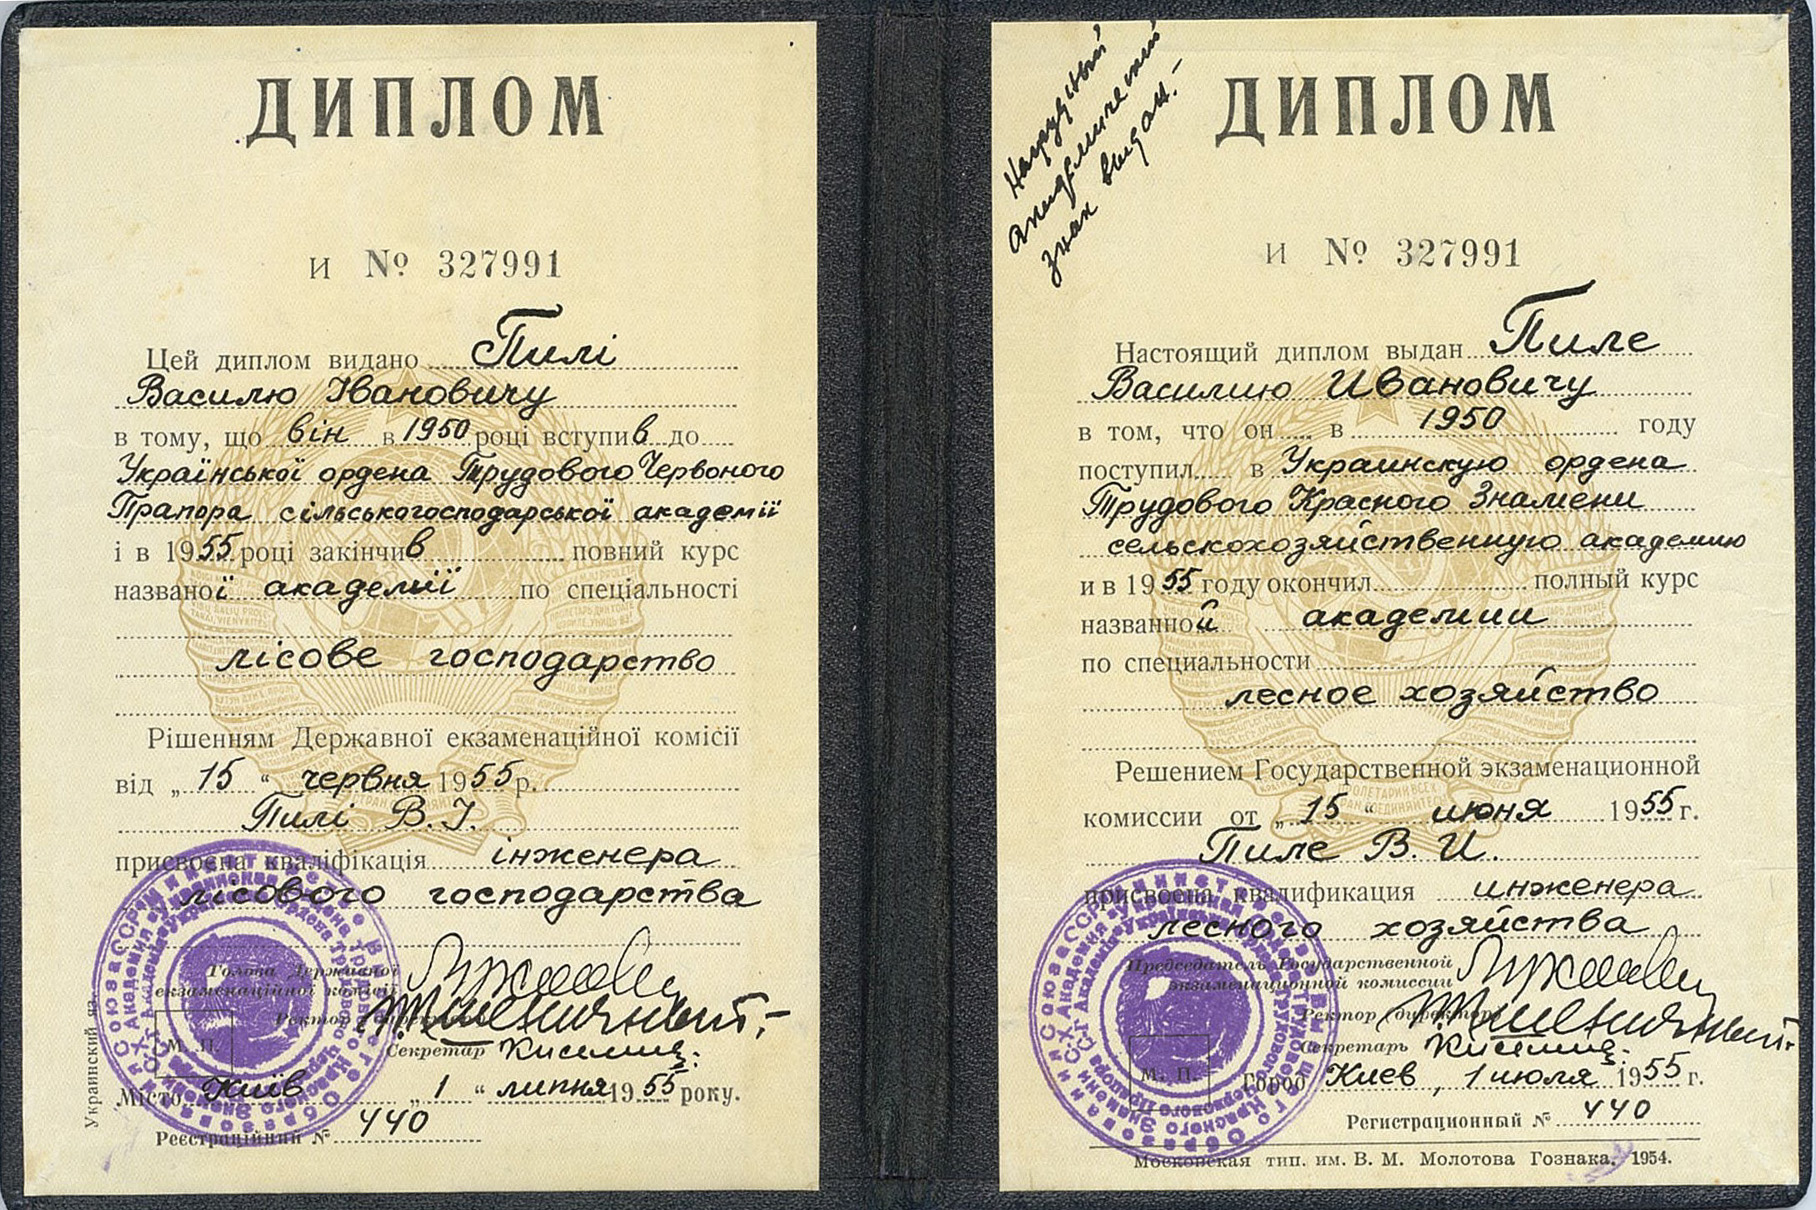 ДИПЛОМ
И № 327991
Цей диплом видано Пилі
Василю Івановичу
в тому, що він в 1950 році вступив до
Української ордена Трудового Червоного
Прапора сільськогосподарської академії
і в 1955 році закінчив повний курс
названої академії по спеціальності
лісове господарство
Рішенням Державної екзаменаційної комісії
від „15“ червня 1955 р.
Пилі В. І.
присвоєна кваліфікація інженера
лісового господарства
Голова Державної
екзаменаційної комісії
Ректор
Секретар
М. П.
Місто Київ „1“ липня 1955 року.
Реєстраційний № 440
Украинский яз.
Нагрудный
академический
знак выдан.-
ДИПЛОМ
И № 327991
Настоящий диплом выдан Пиле
Василию Ивановичу
в том, что он в 1950 году
поступил в Украинскую ордена
Трудового Красного Знамени
сельскохозяйственную академию
и в 1955 году окончил полный курс
названной академии
по специальности
лесное хозяйство
Решением Государственной экзаменационной
комиссии от „15“ июня 1955 г.
Пиле В. И.
присвоена квалификация инженера
лесного хозяйства
Председатель Государственной
экзаменационной комиссии
Ректор (директор)
Секретарь
М. П.
Город Киев, 1 июля 1955 г.
Регистрационный № 440
Московская тип. им. В. М. Молотова Гознака. 1954.